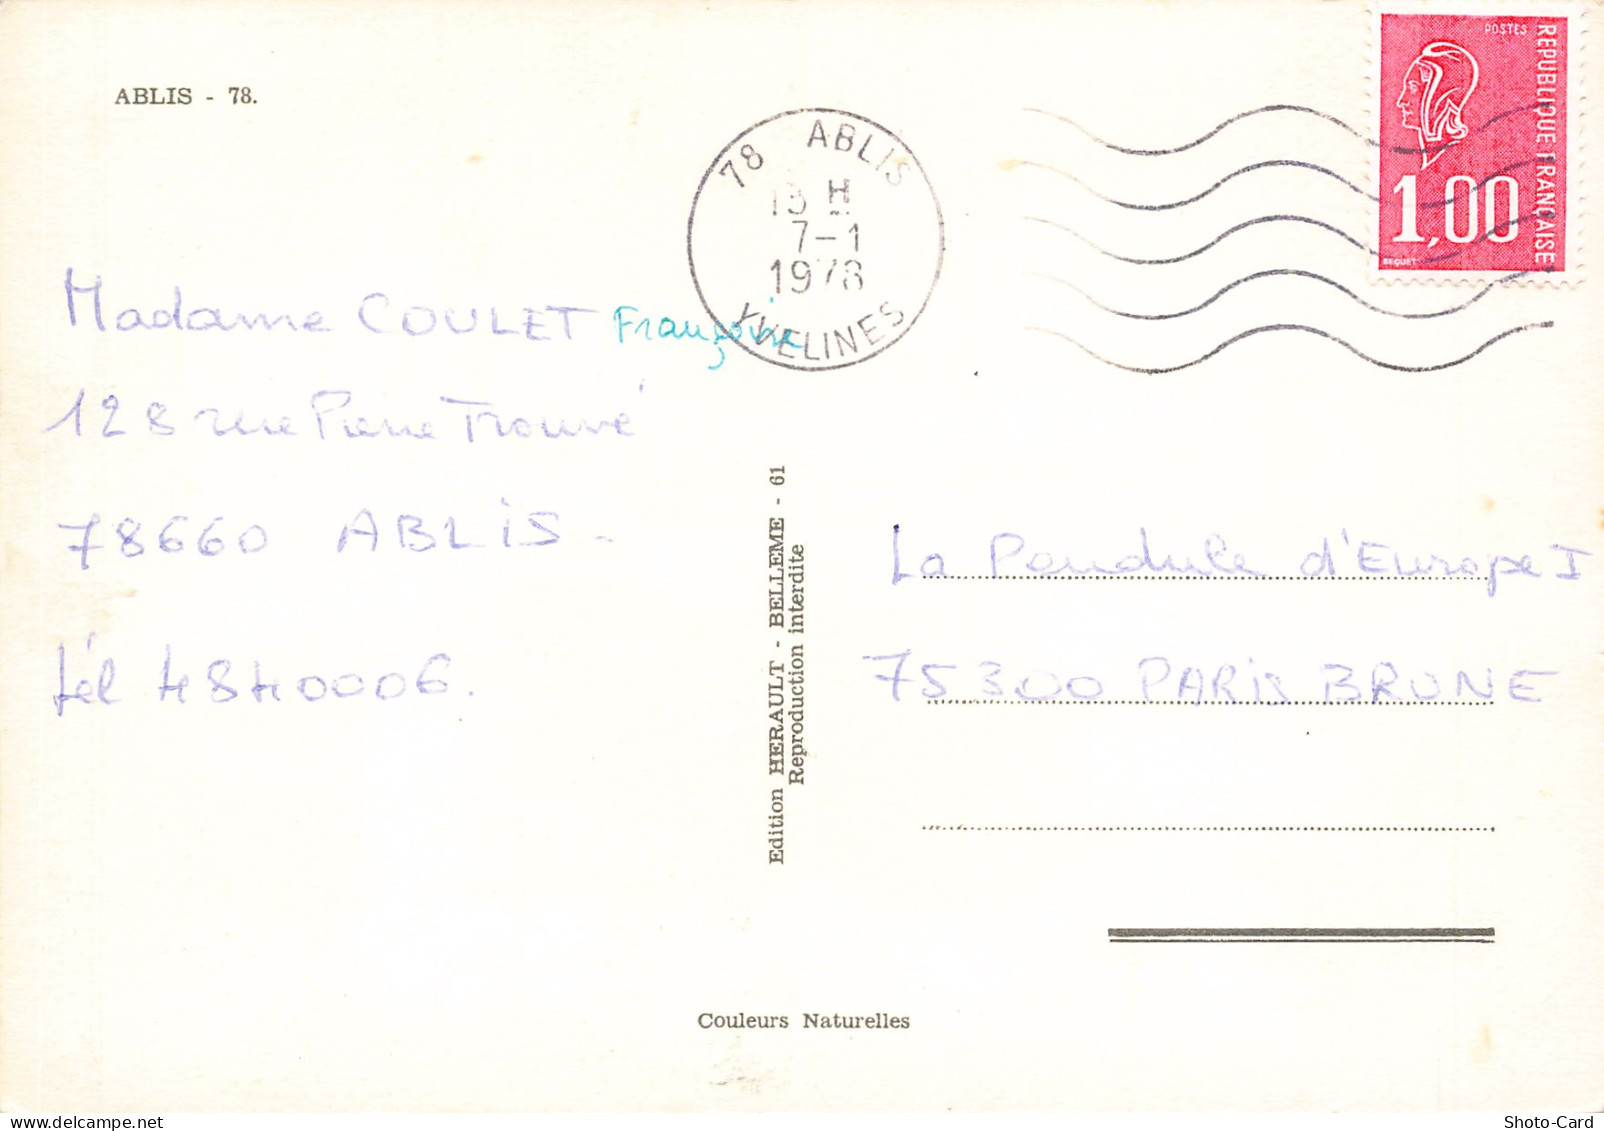 ABLIS - 78.
78 ABLIS
13 H
7-1
1978
YVELINES
POSTES
REPUBLIQUE FRANÇAISE
1,00
BEQUET
Madame COULET Françoise
128 rue Pierre Trouvé
78660 ABLIS -
tél 4840006.
Edition HERAULT - BELLEME - 61
Reproduction interdite
La Pendule d'Europe I
75300 PARIS BRUNE
Couleurs Naturelles
Shoto-Card